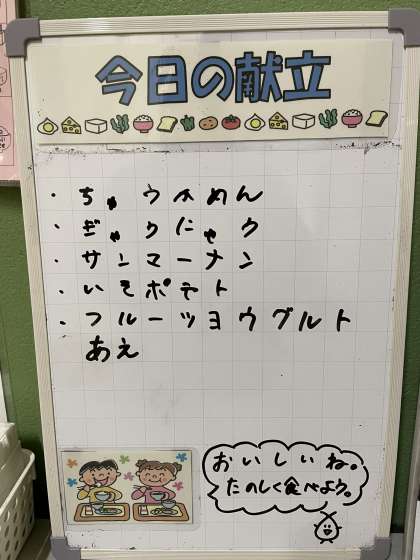 今日の献立
・ちゅウかめん
・ぎゅうにゅウ
・サンマーナン
・いそポテト
・フルーツヨウグルト
あえ
おいしいね。
たのしく食べよう。